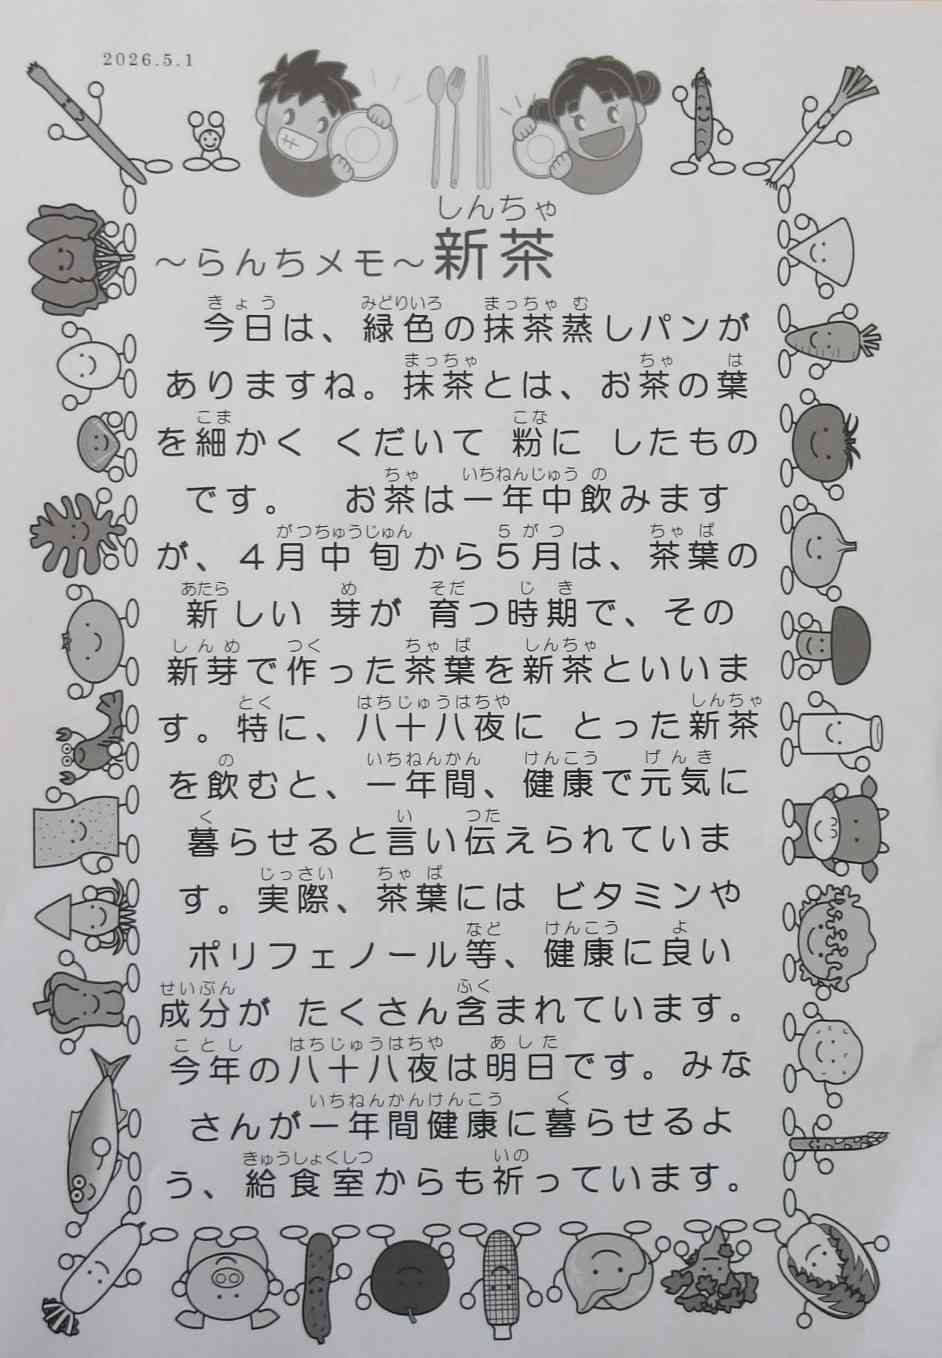 2026.5.1
しんちゃ
～らんちメモ～新茶
きょう みどりいろ まっちゃ む
今日は、緑色の抹茶蒸しパンが
まっちゃ ちゃ は
ありますね。抹茶とは、お茶の葉
こま こな
を細かく くだいて 粉に したもの
ちゃ いちねんじゅう の
です。 お茶は一年中飲みます
がつちゅうじゅん ５がつ ちゃば
が、４月中旬から５月は、茶葉の
あたら め そだ じき
新しい 芽が 育つ時期で、その
しんめ つく ちゃば しんちゃ
新芽で作った茶葉を新茶といいま
とく はちじゅうはちや しんちゃ
す。特に、八十八夜に とった新茶
の いちねんかん けんこう げんき
を飲むと、一年間、健康で元気に
く い つた
暮らせると言い伝えられていま
じっさい ちゃば
す。実際、茶葉には ビタミンや
など けんこう よ
ポリフェノール等、健康に良い
せいぶん ふく
成分が たくさん含まれています。
ことし はちじゅうはちや あした
今年の八十八夜は明日です。みな
いちねんかんけんこう く
さんが一年間健康に暮らせるよ
きゅうしょくしつ いの
う、給食室からも祈っています。